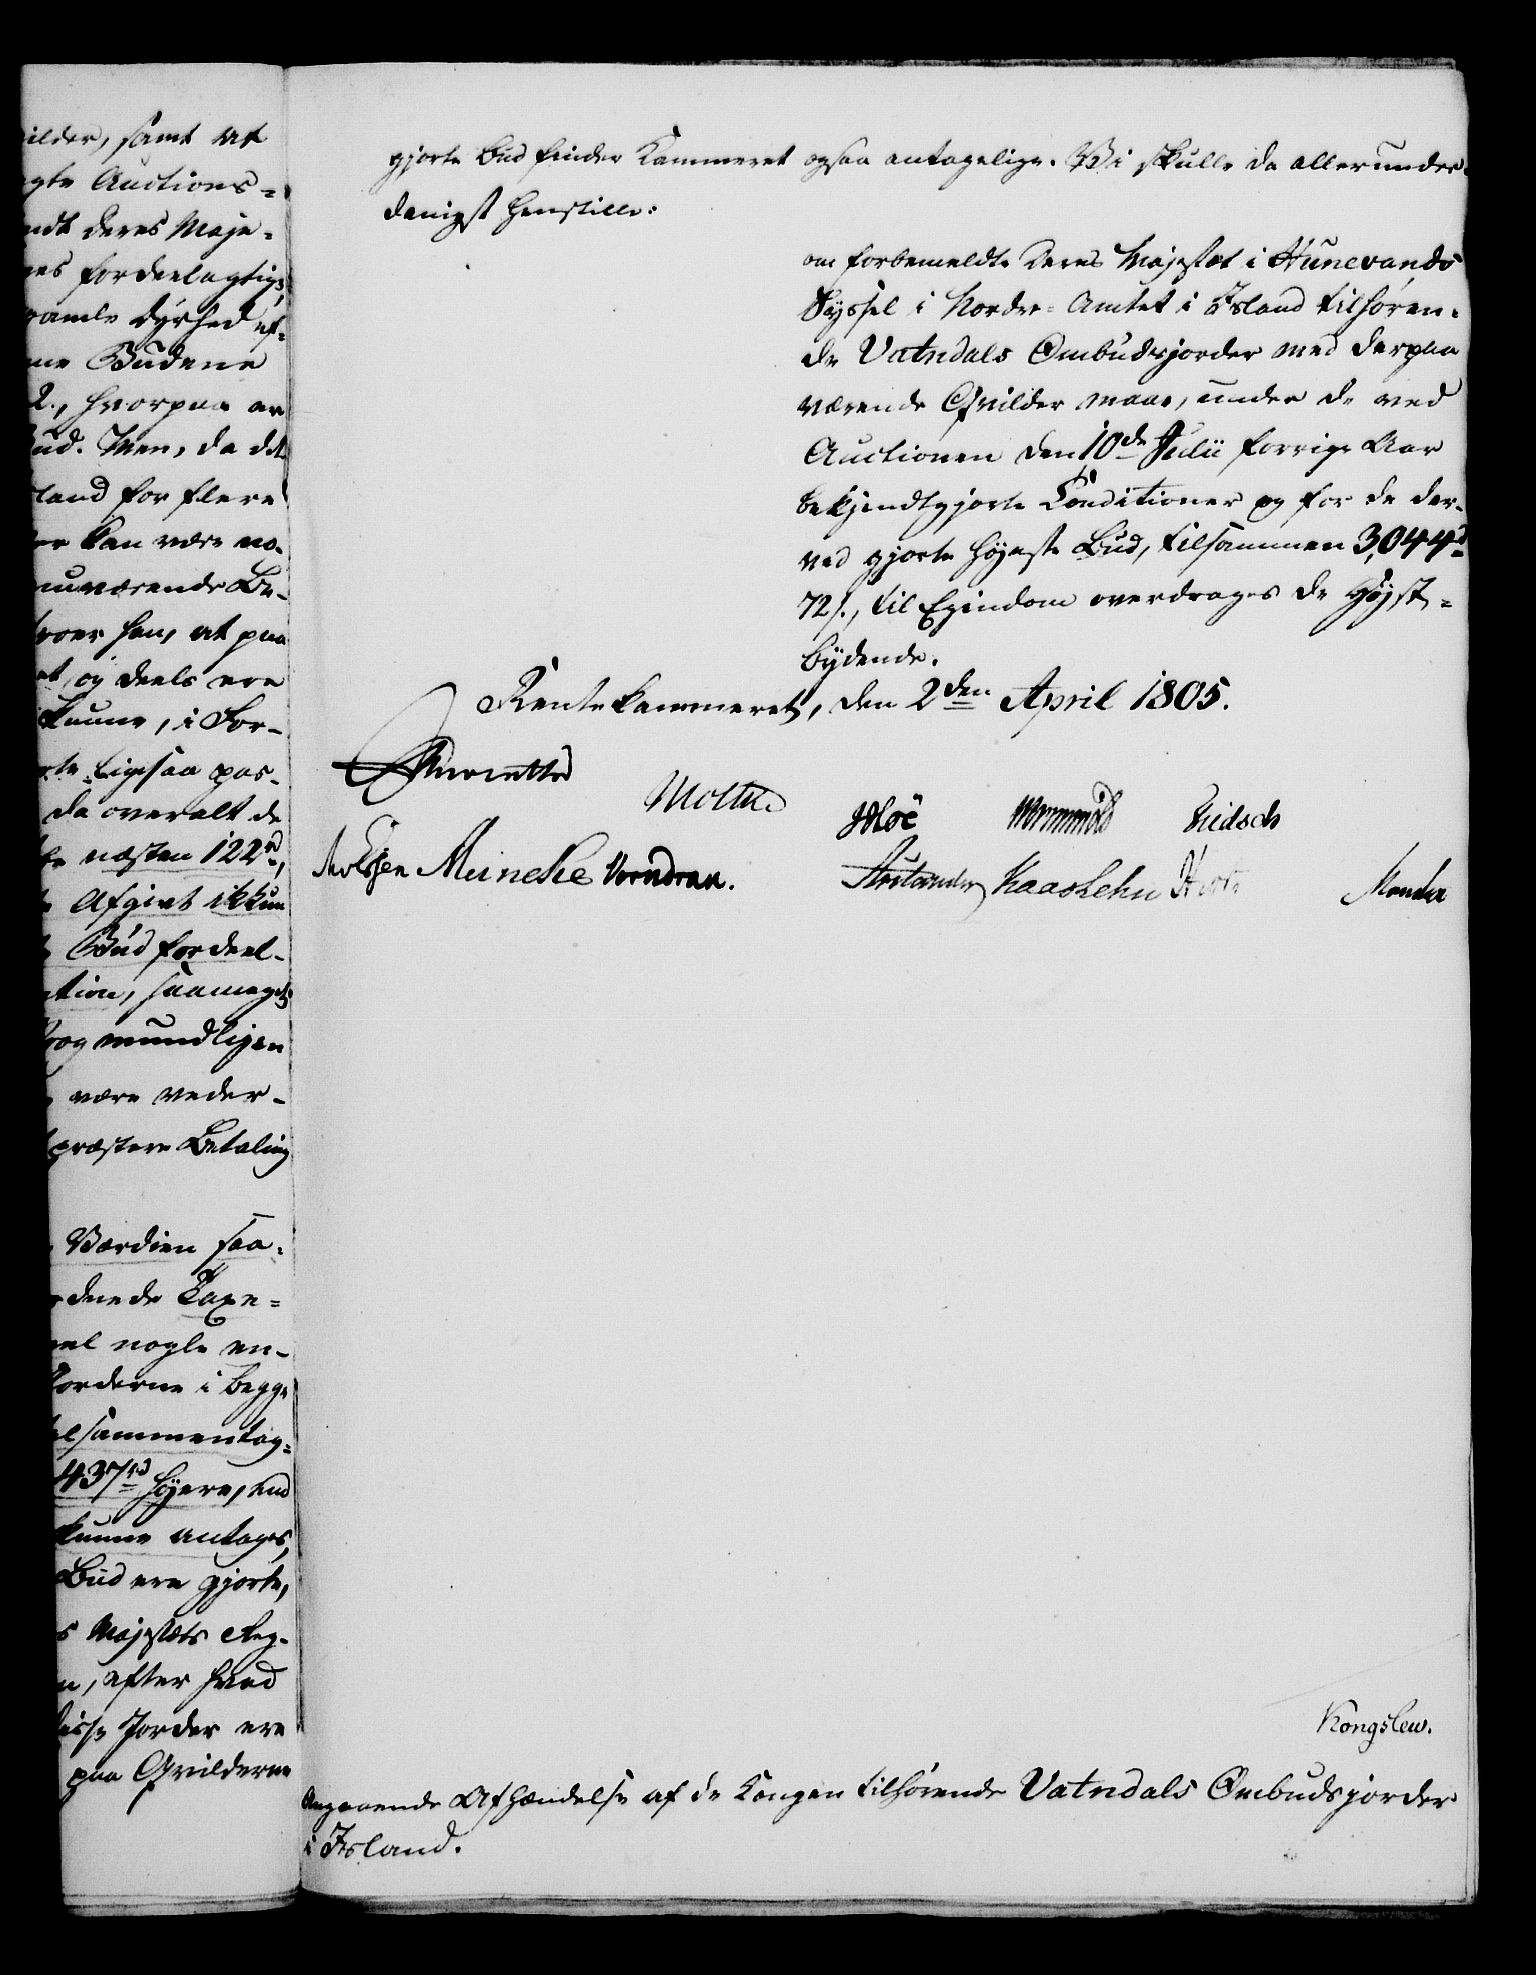 ilder, samt at
gte Auctions-
ndt Deres Maje-
nes fordeelagtig,
gamle Dyrhed ef-
me Budene
2., hvorpaa er
Bud. Men, da det
land for flere
er kan være no-
nuværende Be-
troer han, at paa
et, og deels ere
kunne, i For-
te ligesaa pas-
da overalt de
te næsten 122 rd,
Afgivt ikkun
Bud fordeel-
ction, saameget
og mundligen
være veder-
præstere Betaling
Værdien saa-
dnede Taxe-
el nogle en-
Jorderne i begge
lsammentag-
437 rd høyere, end
kunne antages,
Bud ere gjorte,
s Majestæts Reg-
n, efter hvad
disse Jorder ere
paa Qvilderne
gjorte Bud finder Kammeret ogsaa antagelige. Vi skulle da allerunder-
danigst henstille:
om forbemeldte Deres Majestæt i Hunevands
Syssel i Norder-Amtet i Island tilhøren-
de Vatnsdals Ombudsjorder med derpaa
værende Qvilder maae, under de ved
Auctionen den 10de Julii forrige Aar
bekjendtgjorte Conditioner og for de der-
ved gjorte højeste Bud, tilsammen 3,044 rd
72 s., til Ejendom overdrages de Højst-
bydende.
Rentekammeret, den 2den April 1805.
Moltke
Meincke Vorndran.
Kaas Lehn
Kongslew.
Angaaende Afhændelse af de Kongen tilhørende Vatnsdals Ombudsjorder
i Island.